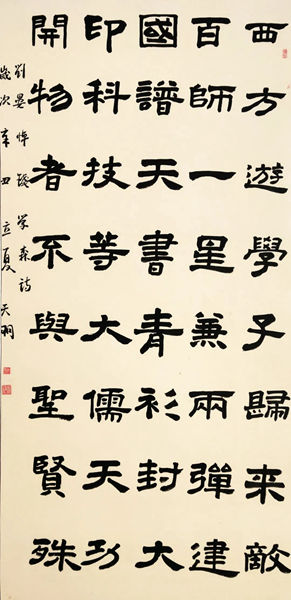 西方遊學子歸來敵
百師一星兼兩彈建
國譜天書青衫封大
印科技等大儒天功
開物者不與聖賢殊
劉晏悼錢学森詩
歲次辛丑立夏天